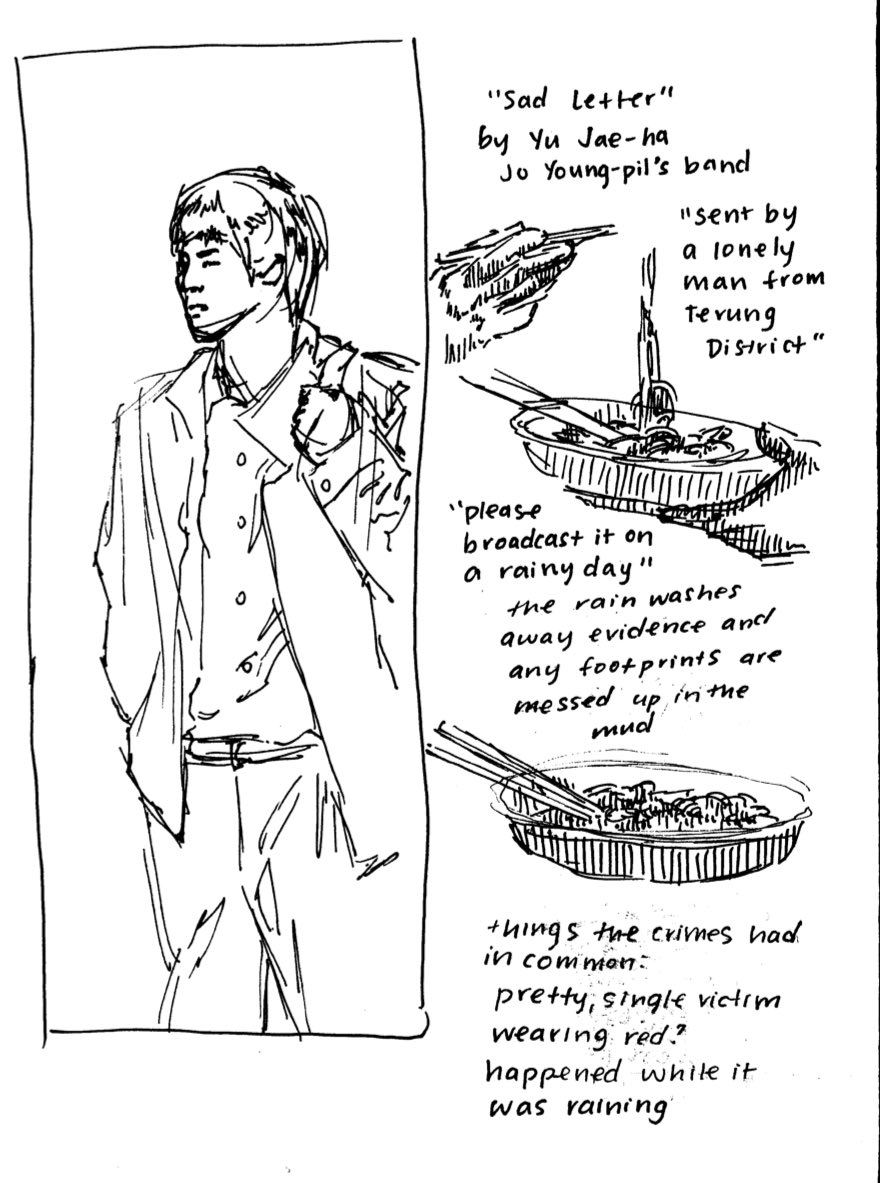 "Sad Letter"
by Yu Jae-ha
Jo Young-pil's band
"sent by
a lonely
man from
Terung
District"
"please
broadcast it on
a rainy day"
the rain washes
away evidence and
any footprints are
messed up in the
mud
things the crimes had
in common:
pretty, single victim
wearing red?
happened while it
was raining